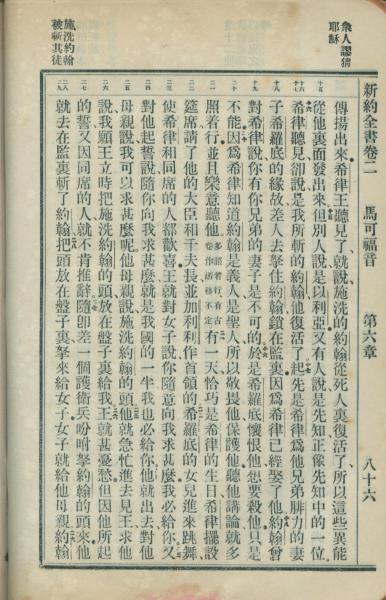 新約全書卷二 馬可福音 第六章 八十六
衆人謬猜
耶穌
施洗約翰
被斬其徒
十五
十六
十七
十八
十九
二十
二一
二二
二三
二四
二五
二六
二七
二八
二九
傳揚出來希律王聽見了就說施洗的約翰從死人裏復活了所以這些異能
從他裏面發出來但別人說是以利亞又有人說是先知正像先知中的一位
希律聽見卻說是我所斬的約翰他復活了起先是希律爲他兄弟腓力的妻
子希羅底的緣故差人去拏住約翰鎖在監裏因爲希律已經娶了他約翰曾
對希律說你有你兄弟的妻子是不可的於是希羅底懷恨他想要殺他只是
不能因爲希律知道約翰是義人是聖人所以敬畏他保護他聽他講論就多
照着行並且樂意聽他多照着行有古卷作游移不定有一天恰巧是希律的生日希律擺設
筵席請了他的大臣和千夫長並加利利作首領的希羅底的女兒進來跳舞
使希律和同席的人都歡喜王就對女子說你隨意向我求甚麼我必給你又
對他起誓說隨你向我求甚麼就是我國的一半我也必給你他就出去對他
母親說我可以求甚麼呢他母親說施洗約翰的頭他就急忙進去見王求他
說我願王立時把施洗約翰的頭放在盤子裏給我王就甚憂愁但因他所起
的誓又因同席的人就不肯推辭隨卽差一個護衛兵吩咐拏約翰的頭來他
就去在監裏斬了約翰把頭放在盤子裏拏來給女子女子就給他母親約翰